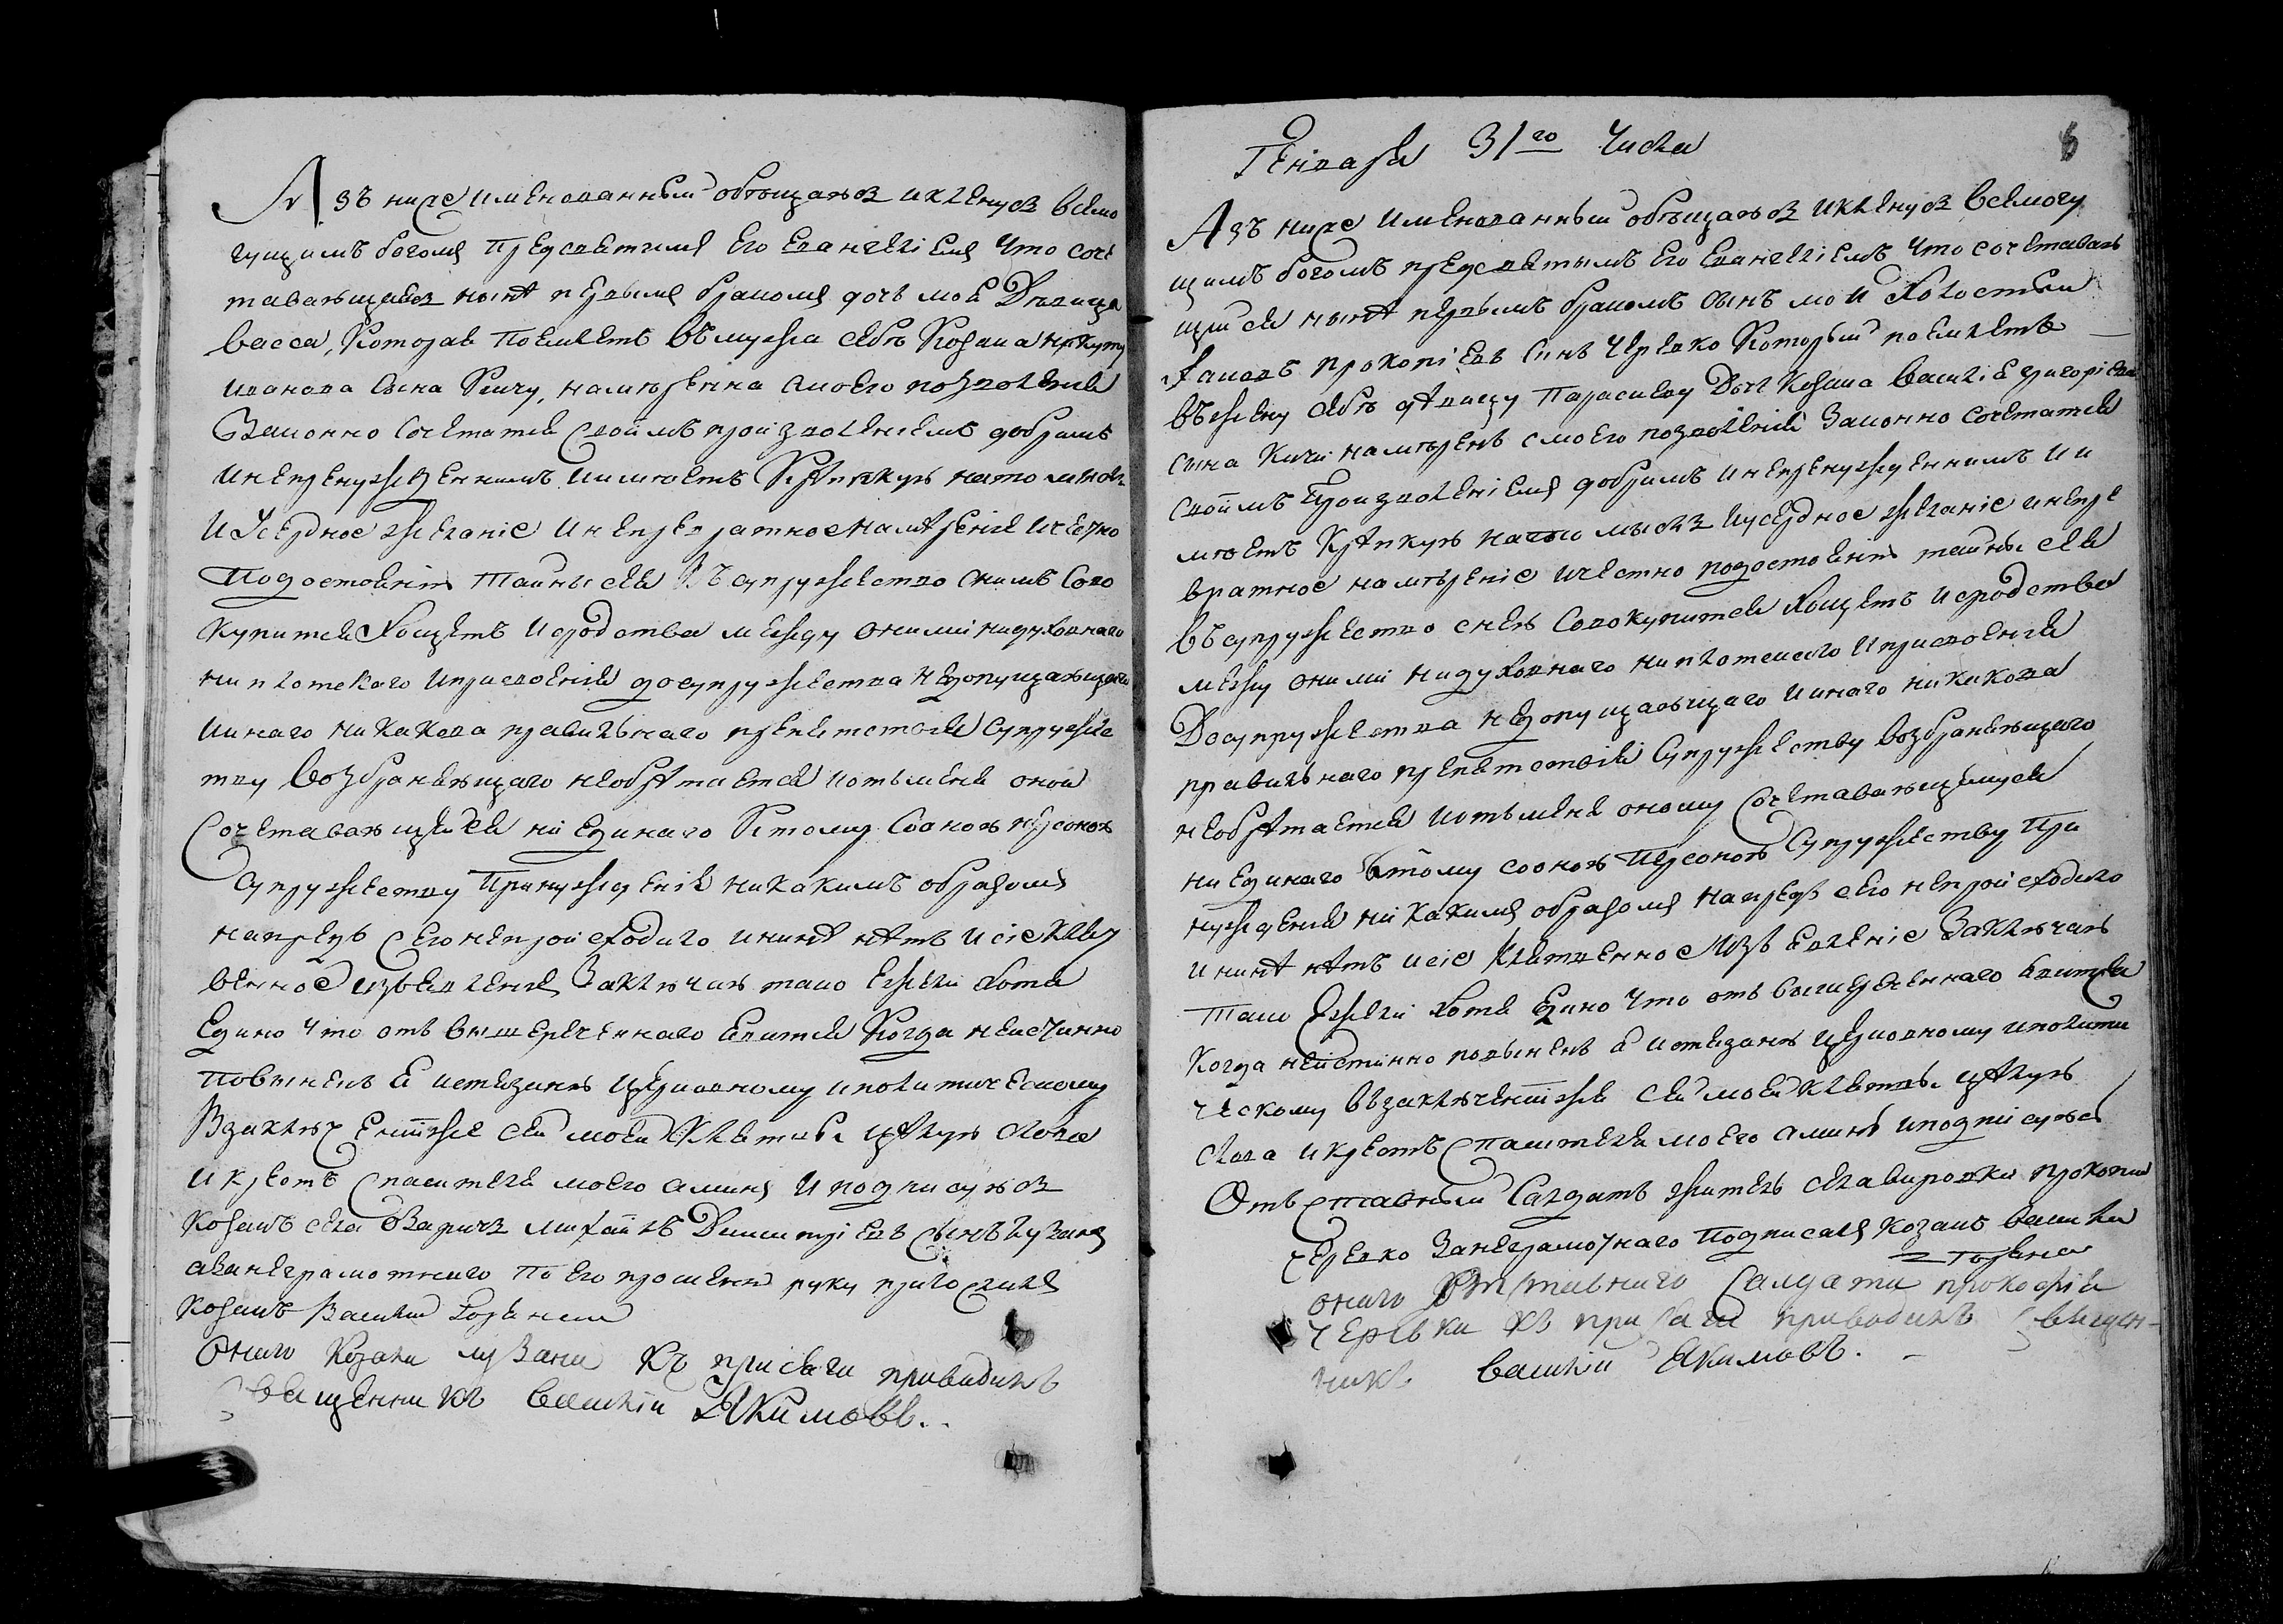 Азъ ниже именованный обѣщаюся и клянуся всемо
гущимъ богомъ пресвятымъ его евангелиемъ что соче
тавающаяся нынѣ первымъ бракомъ дочь моя Дѣвица
васса, которая поемлетъ въ мужа себѣ козака
иванова сына Кичу, намѣренна с моего позволения
Законно сочетатся своимъ произволениемъ добримъ
и непренужденнимъ и имѣетъ крѣпкую на то мисль
и Усердное желаніе и непревратное намѣреніе и честно
по достоянію Тайны сея въ супружество снимъ Сово
купится хощетъ и сродства между оними ни духовнаго
ни плотскаго и присвоенія до супружества недопущающаго
и инаго никакова правильнаго препятствия Супружес
тву возбраняющаго необрѣтается и отъ мене оной
Сочетавающейся ни единаго к тому Соною персоною
Супружеству Принужденія никакимъ образомъ
напредъ сего непроисходило и нинѣ нѣтъ и сіе клят
венное изъявление Заключаю тако ежели хотя
Едино что отъ вышереченнаго явится когда неистинно
повиненъ я истязанию церковному и политическому
Взаключение же сей моей клятвы цѣлую слова
и крестъ спасителя моего аминь и подписуюся
козакъ села Михаилъ Димитріевъ сынъ лузанъ
а за неграмотнаго по его прошению руку приложилъ
козакъ Василий
Онаго козака лузана къ присяги приводилъ
священникъ василій Якимовъ..
Генваря 31го Числа
Азъ ниже именованный обѣщаюся и клянуся всемогу
щимъ богомъ пресвятымъ его евангелиемъ что сочетаваю
щийся нынѣ первымъ бракомъ сынъ мой холостый
Яковъ прокопіевъ синъ Черевко который поемлетъ
въ жену себѣ дѣвицу Параскеву Дочь козака василія григоріева
сына Кичи намѣренъ с моего позволения Законно сочетатся
своимъ произволениемъ добримъ и непренужденнимъ и и
мѣетъ крѣпкую на то мысль и усердное желаніе и непре
вратное намѣреніе и честно по достоянію тайны сея
въ супружество снею Совокупится хощетъ и сродства
между оними ни духовнаго ни плотскаго и присвоения
До супружества недопущающаго и инаго никакова
правильнаго препятствія Супружеству возбраняющаго
необрѣтается и отъ мене оному Сочетавающемуся
ни единаго к тому соною персоною Супружеству При
нуждения никакимъ образомъ напредъ сего непроисходило
и нинѣ нѣтъ и сіе клятвенное изъявленіе Заключаю
тако Ежели хотя едино что отъ вышереченнаго явится
когда неистинно повиненъ я истязанию церковному и полити
ческому взаключение же сей моей клятвы цѣлую
слова и крестъ спасителя моего аминь и подписуюсь
Отъставный Салдатъ житель села прокопий
Черевко За неграмотнаго Подписалъ козакъ василий
онаго отставнаго Салдата прокофія
Черевка къ присяги приводилъ священ-
никъ василій Якимовъ. -